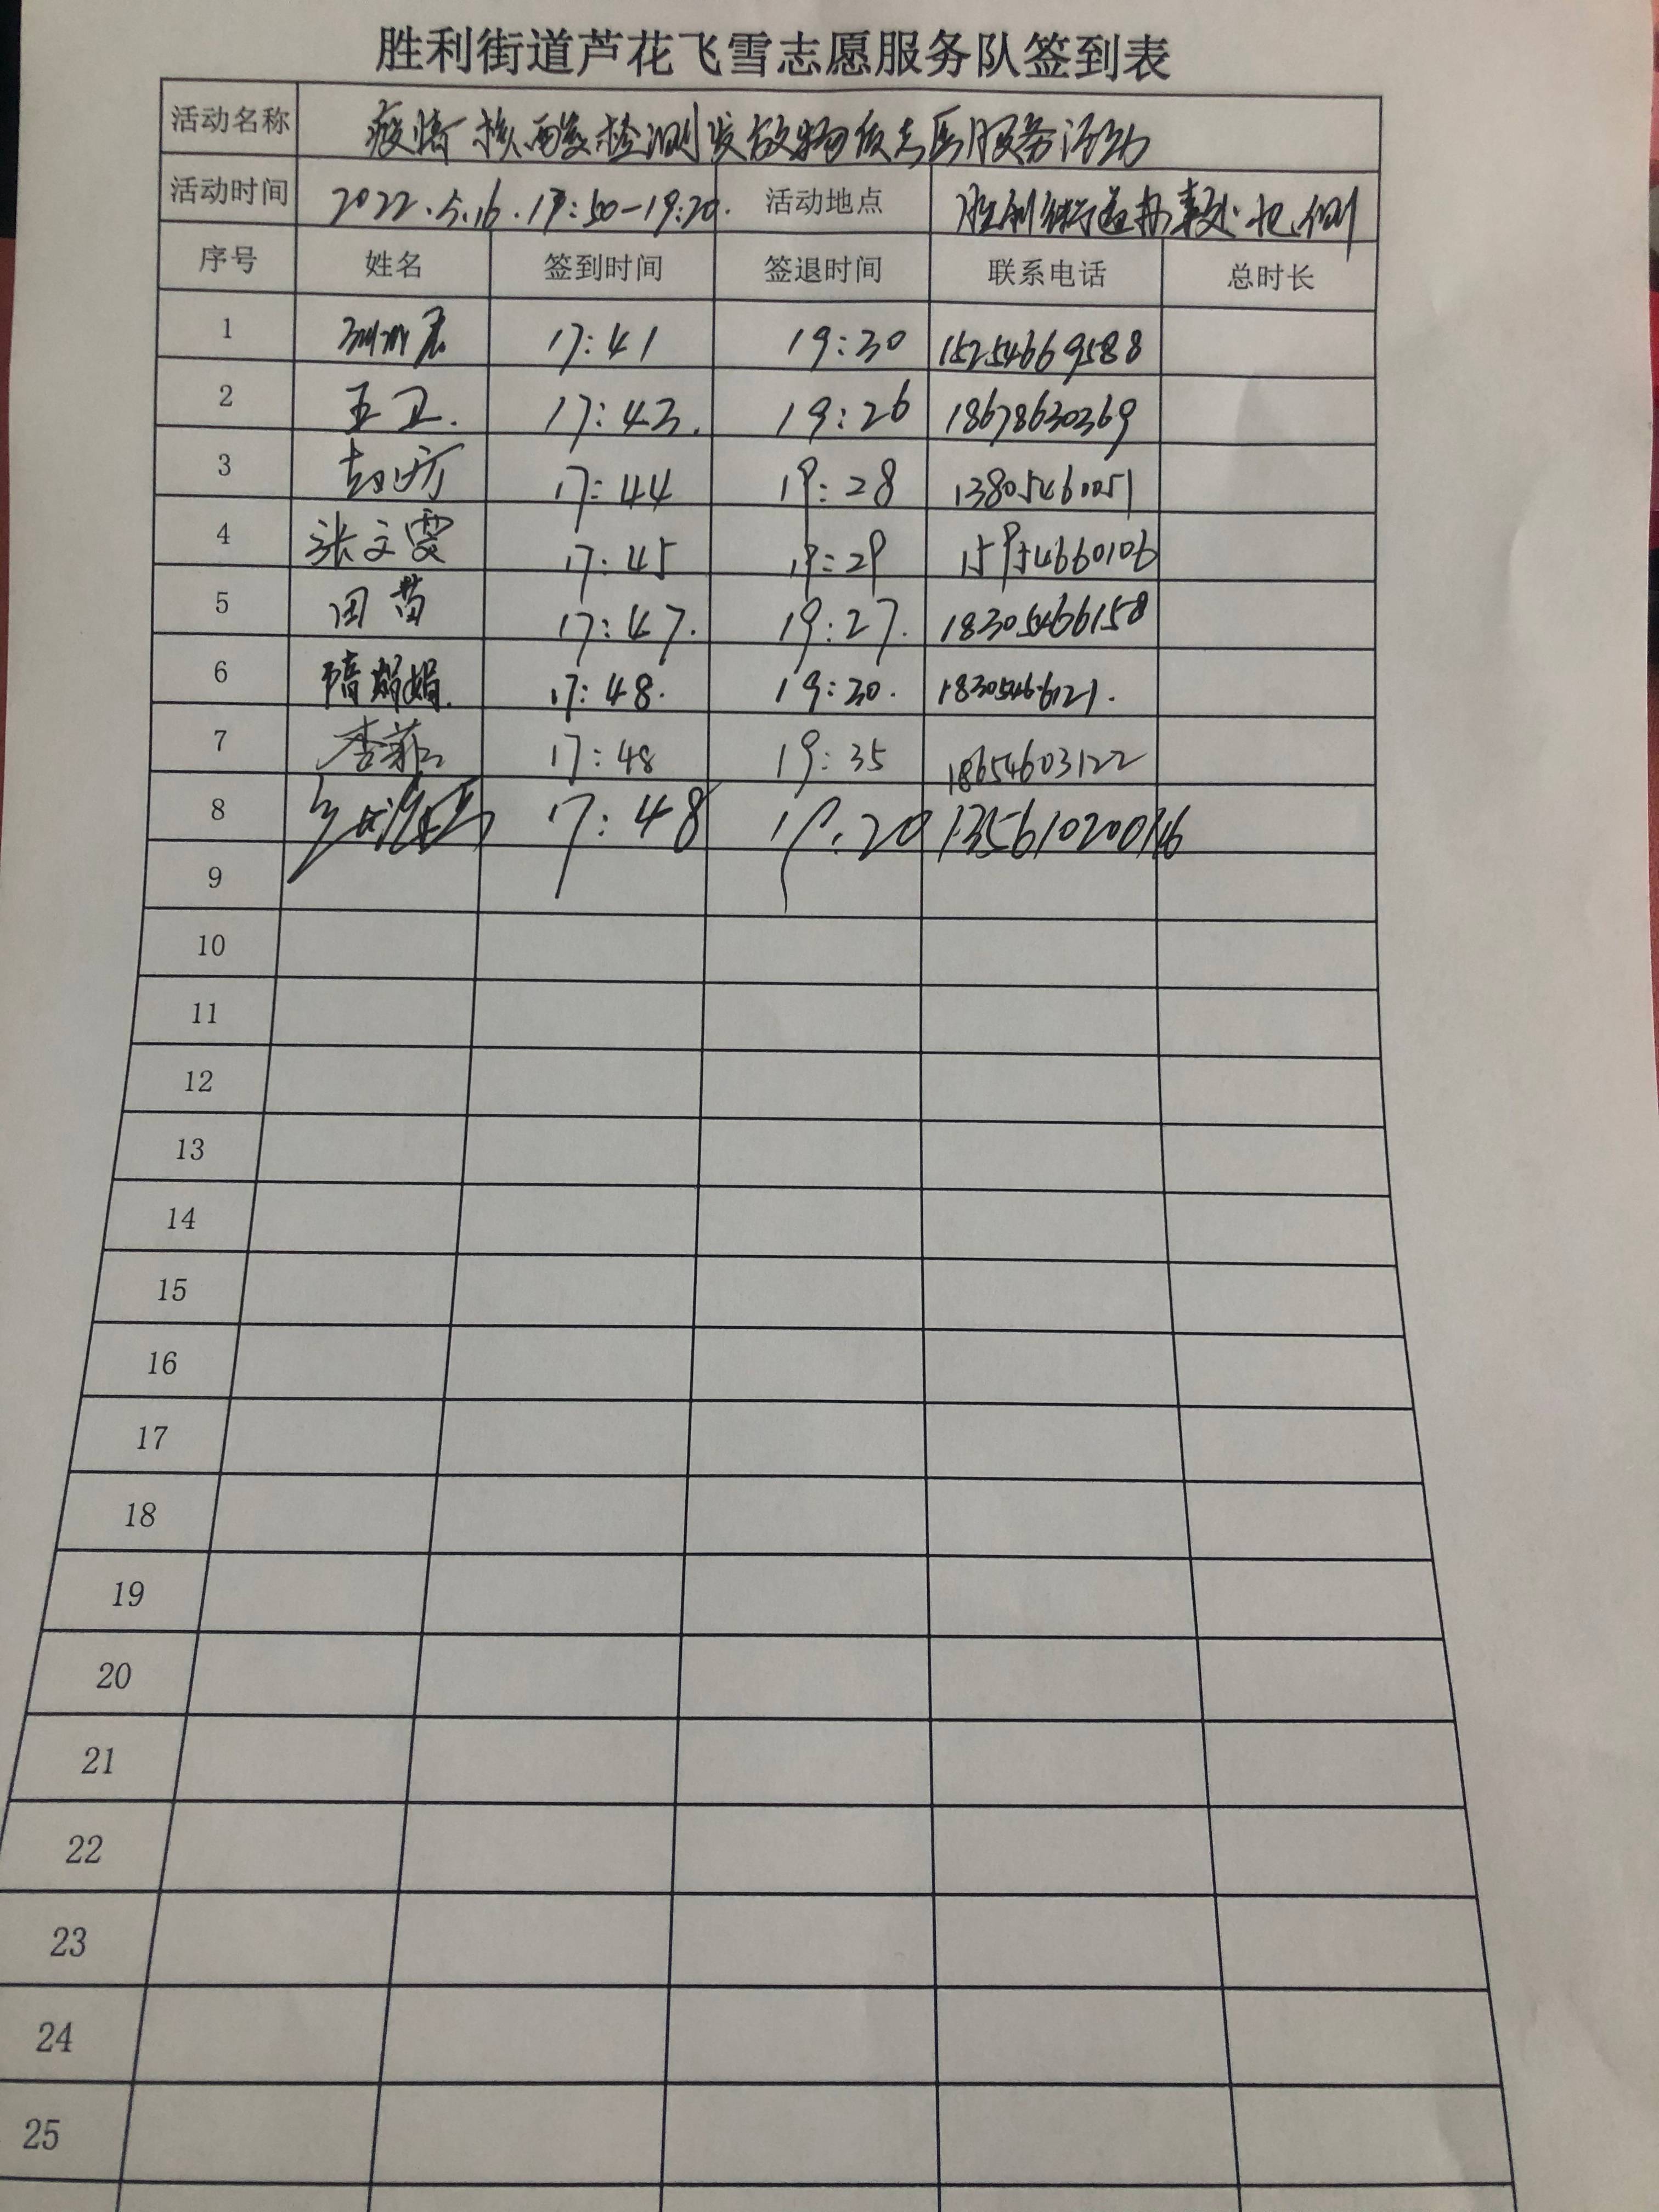 胜利街道芦花飞雪志愿服务队签到表
活动名称 疫情核酸检测发放物质志愿服务活动
活动时间 2022.5.16.17:50-19:20. 活动地点 胜利街道办事处北侧
序号 姓名 签到时间 签退时间 联系电话 总时长
1 17:41 19:30 15254669588
2 王卫. 17:43. 19:26 18678630369
3 17:44 19:28 13805460051
4 张文雯 17:45 19:29 15954660106
5 田苗 17:47. 19:27. 18305466158
6 隋娟娟. 17:48. 19:30. 18305466121.
7 17:48 19:35 18654603122
8 17:48 19:20
9
10
11
12
13
14
15
16
17
18
19
20
21
22
23
24
25